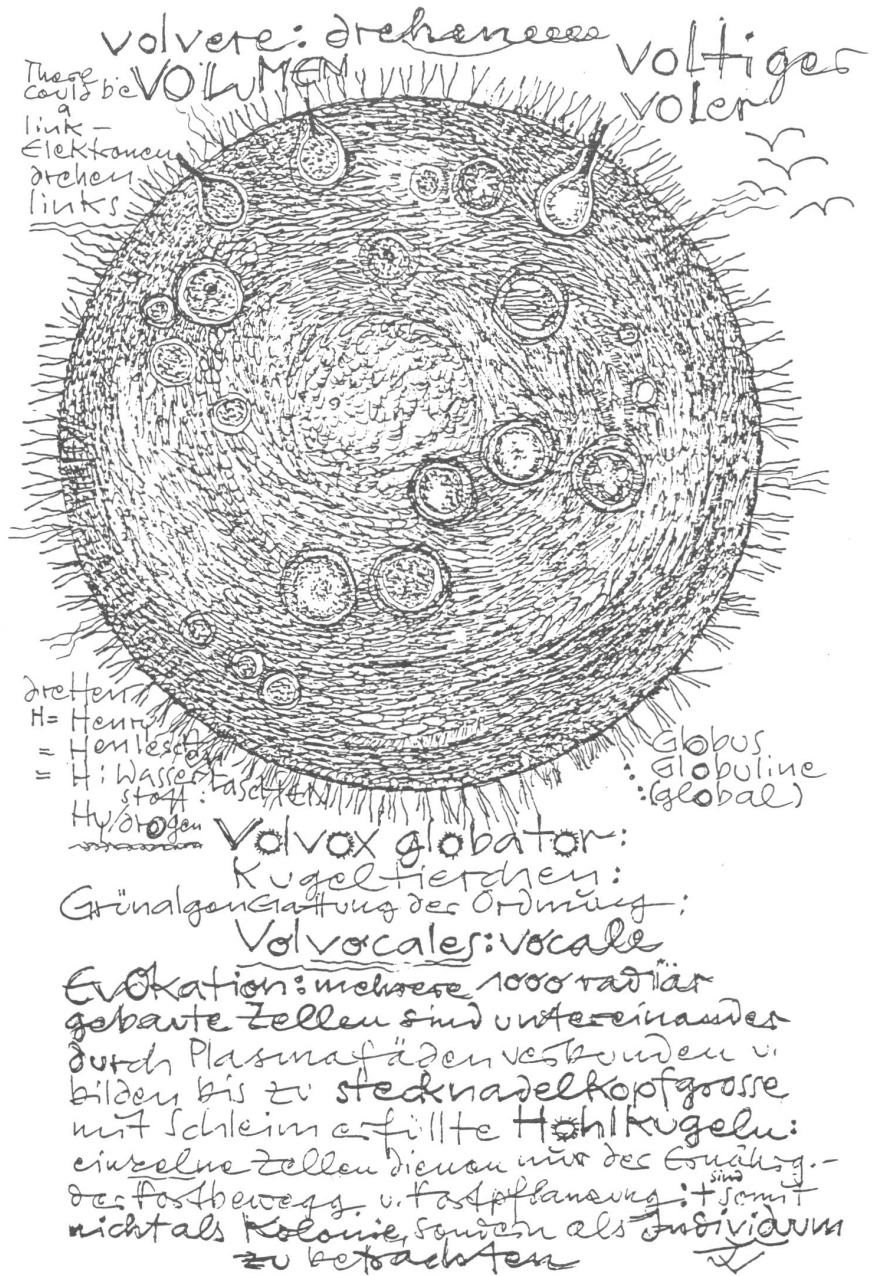 volvere: dreheneeee
VOLUMEN
voltiger
voler
There
could be
a
link –
Elektronen
drehen
links
H = Henry
= H: Wasser
stoff:
Hydrogen
Globus
Globuline
(global)
Volvox globator:
Kugeltierchen:
Grünalgengattung der Ordnung:
Volvocales: vocale
Evokation: mehrere 1000 radiär
gebaute Zellen sind untereinander
durch Plasmafäden verbunden u.
bilden bis zu stecknadelkopfgrosse
mit Schleim erfüllte Hohlkugeln:
einzelne Zellen dienen nur der Ernährg.–
der Fortbewegg. u. Fortpflanzung: + sind somit
nicht als Kolonie, sondern als Individuum
zu betrachten